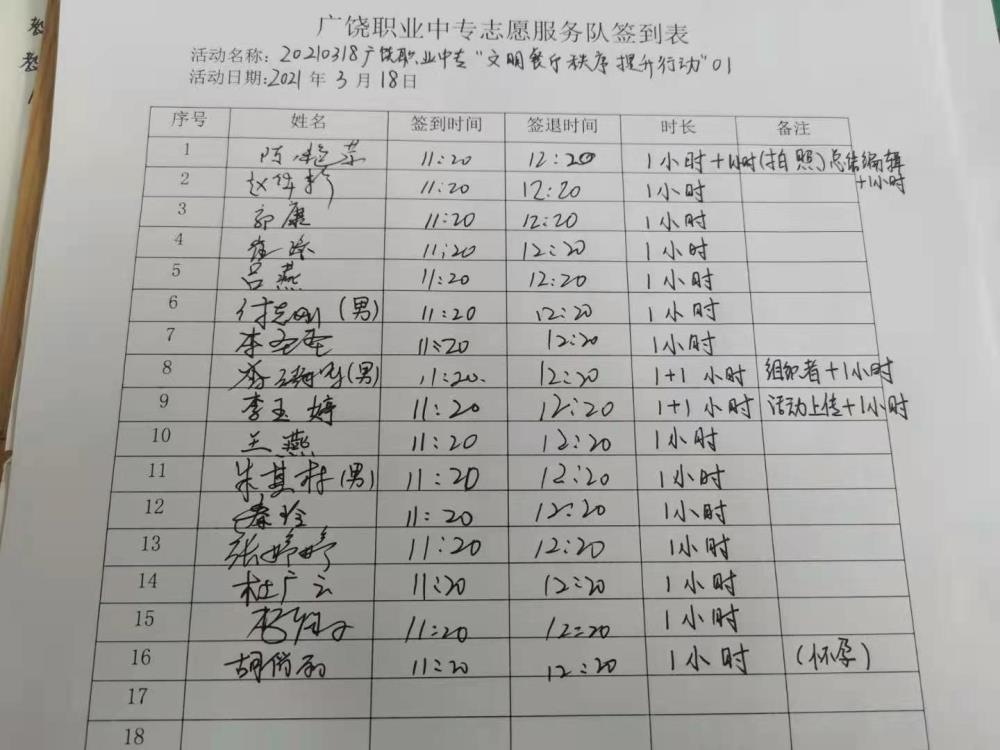 广饶职业中专志愿服务队签到表
活动名称: 20210318广饶职业中专“文明餐厅秩序提升行动”01
活动日期:2021年3月18日
序号 姓名 签到时间 签退时间 时长 备注
1 陈艳荣 11:20 12:20 1小时+1小时(拍照)总结编辑+1小时
2 11:20 12:20 1小时
3 郭康 11:20 12:20 1小时
4 11:20 12:20 1小时
5 吕燕 11:20 12:20 1小时
6 付志刚(男) 11:20 12:20 1小时
7 李圣圣 11:20 12:20 1小时
8 (男) 11:20. 12:20 1+1小时 组织者+1小时
9 李玉婷 11:20 12:20 1+1小时 活动上传+1小时
10 王燕 11:20 12:20 1小时
11 朱其村(男) 11:20 12:20 1小时
12 秦玲 11:20 12:20 1小时
13 张婷婷 11:20 12:20 1小时
14 杜广云 11:20 12:20 1小时
15 11:20 12:20 1小时
16 11:20 12:20 1小时 (怀孕)
17
18